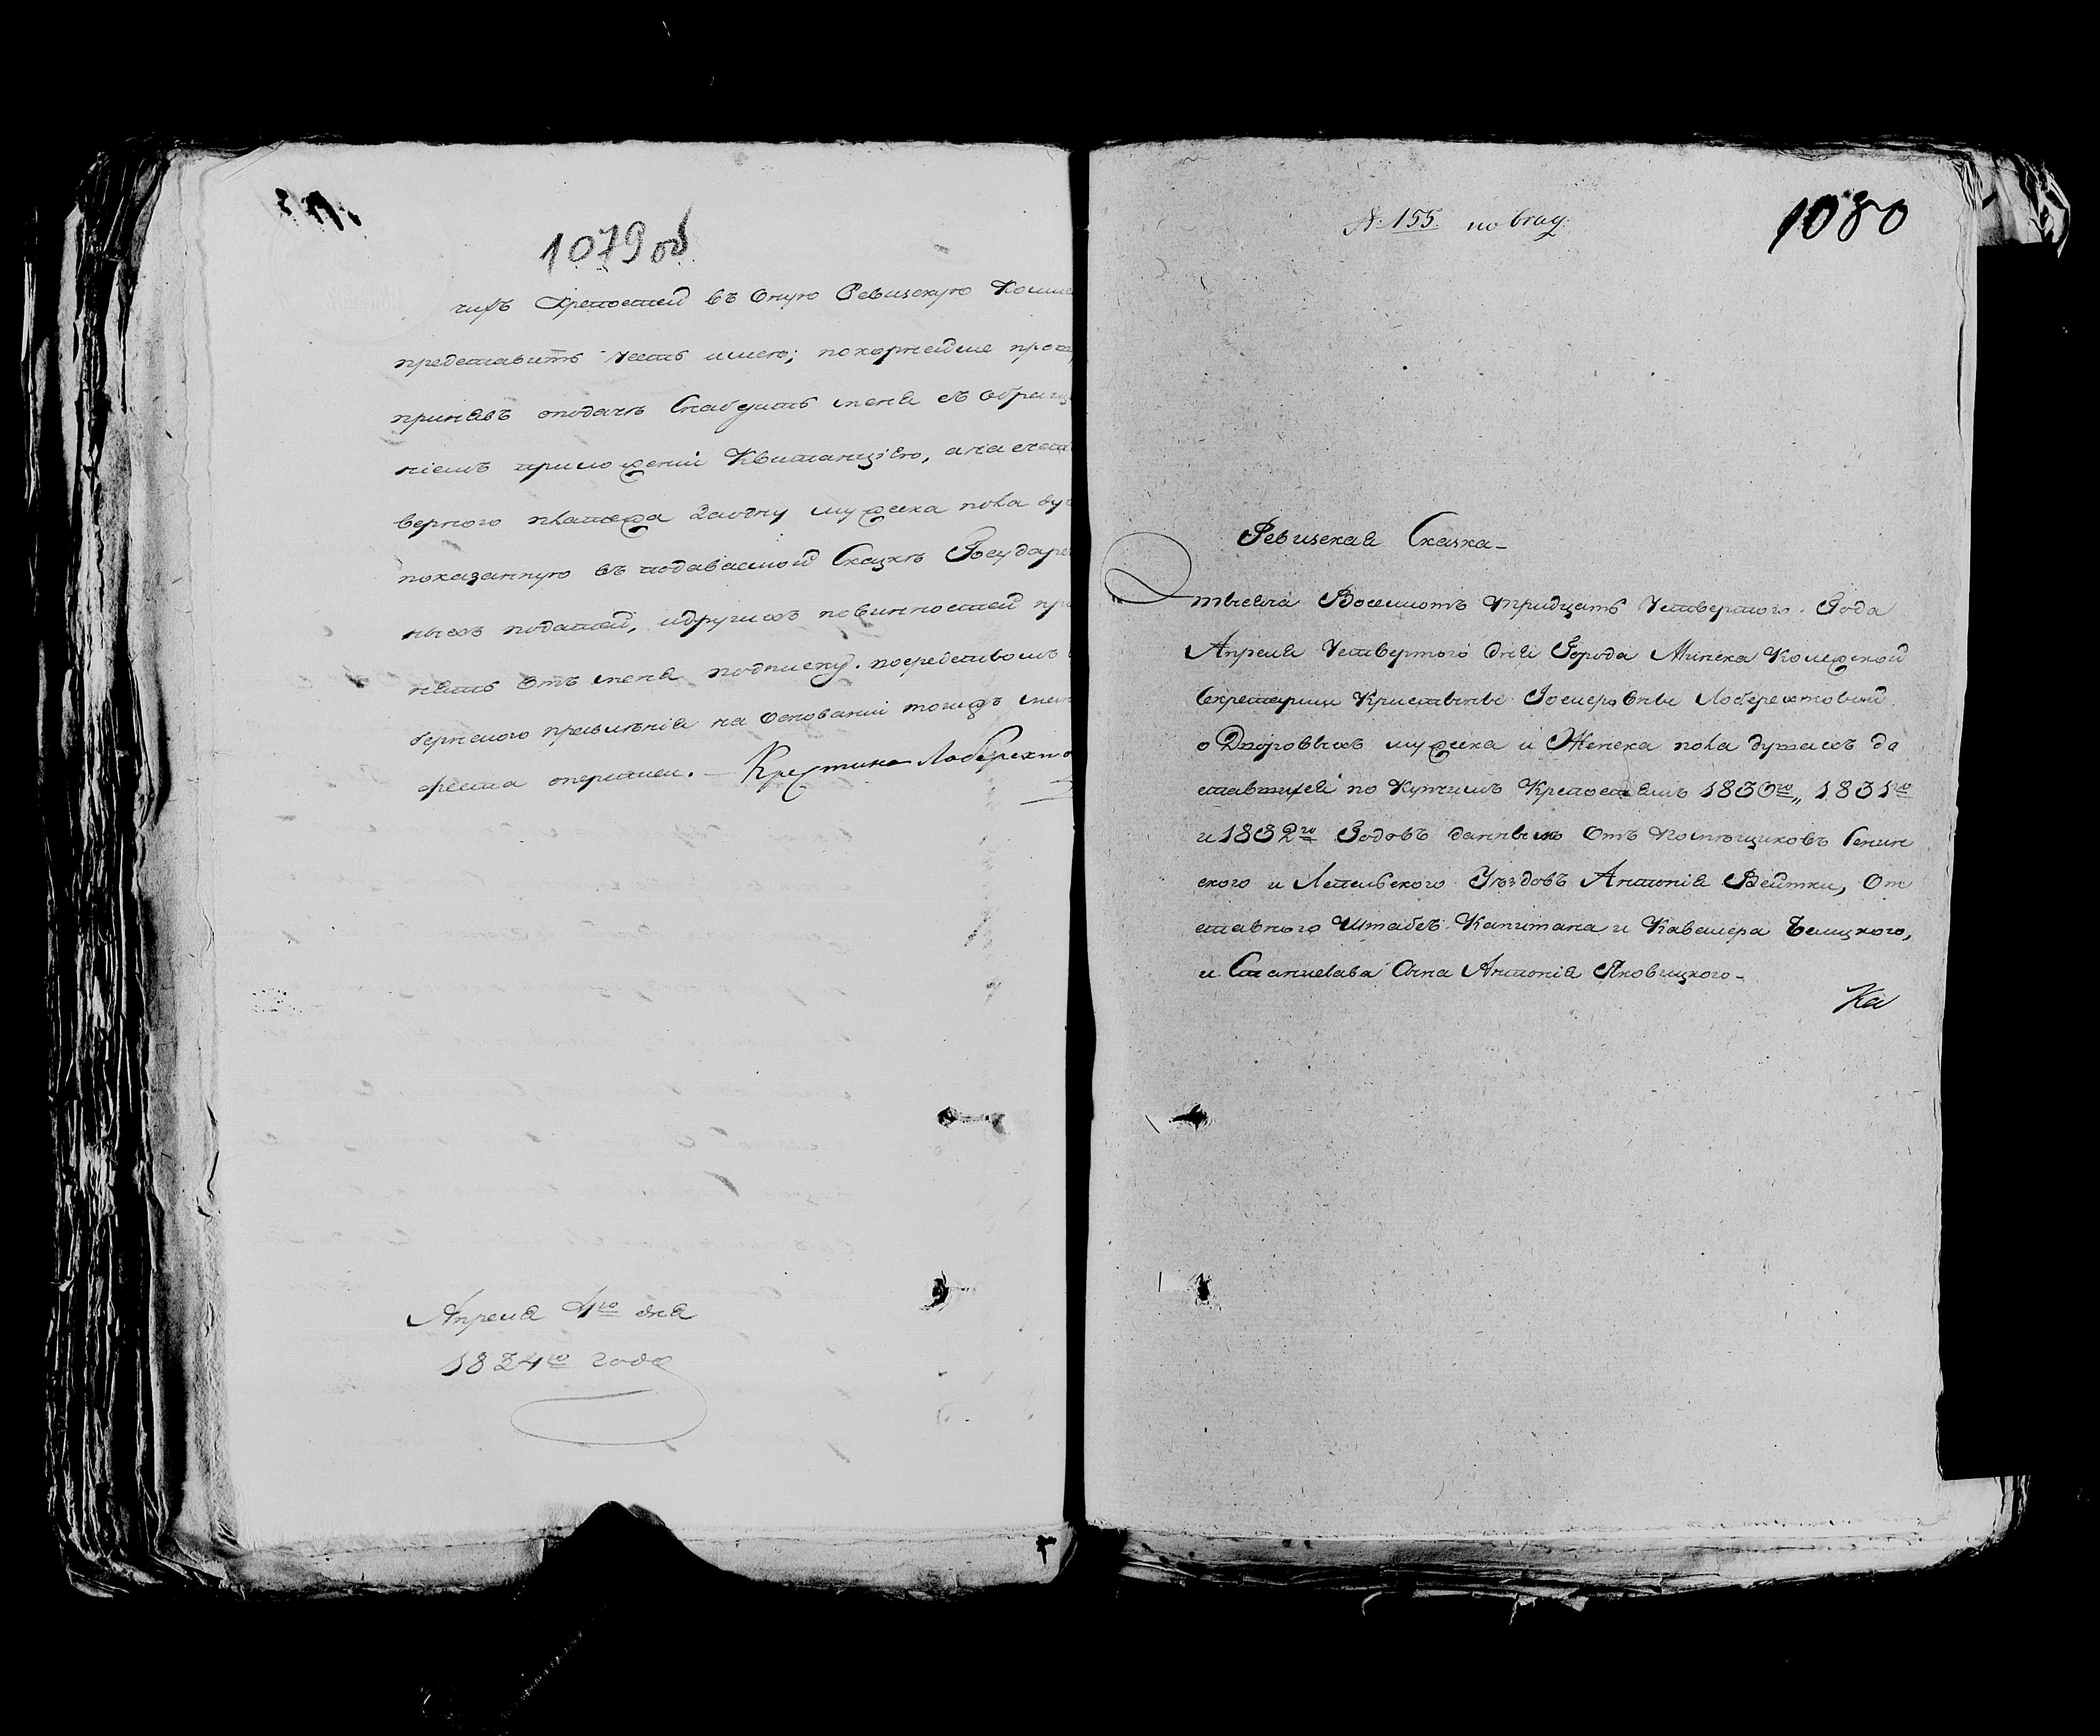 1079 об
чихъ Крепостей въ Оную Ревизскую Комме
представить Честь имею; покорнейше прошу
принявъ оподачѣ Снабдить меня съ обраще
ніемъ приложеній Квитанціею, а на счетъ
верного платежа Заодну мужеска пола ду
показанную въ подаваемой Сказкѣ Государст
ныхъ податей, и другихъ повинностей при
нять Отъ меня подписку. посредствомъ
бернского правленія на Основаніи
Крестина Лаберехто
Апреля 4го дня
1834го года
№ 155. по
1080
Ревизская Сказка
Тысяча Восемьсотъ тридцать Четвертого Года
Апреля Четвертого дня Города Минска Колежской
Секретарши Кристыны Іосиф Овны Лоберехтовой
о Дворовыхъ мужеска и Женска пола душахъ до
ставшихся по Купчимъ Крепостямъ 1830го, 1831го
и 1832го Годовъ даннымъ Отъ Помѣщиковъ Сенин
ского и Лепельского Уѣздовъ Антонія Войтки, От
ставного Штабсъ Капитана и Кавалера Белицкого,
и Станислава Сына Антонія Яковицкого
Ка